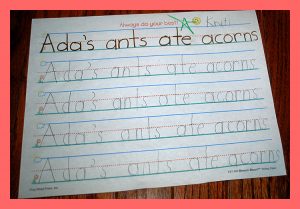 Always do your best!
Ada's ants ate acorns
Ada's ants ate acorns
Ada's ants ate acorns
Ada's ants ate acorns
Ada's ants ate acorns